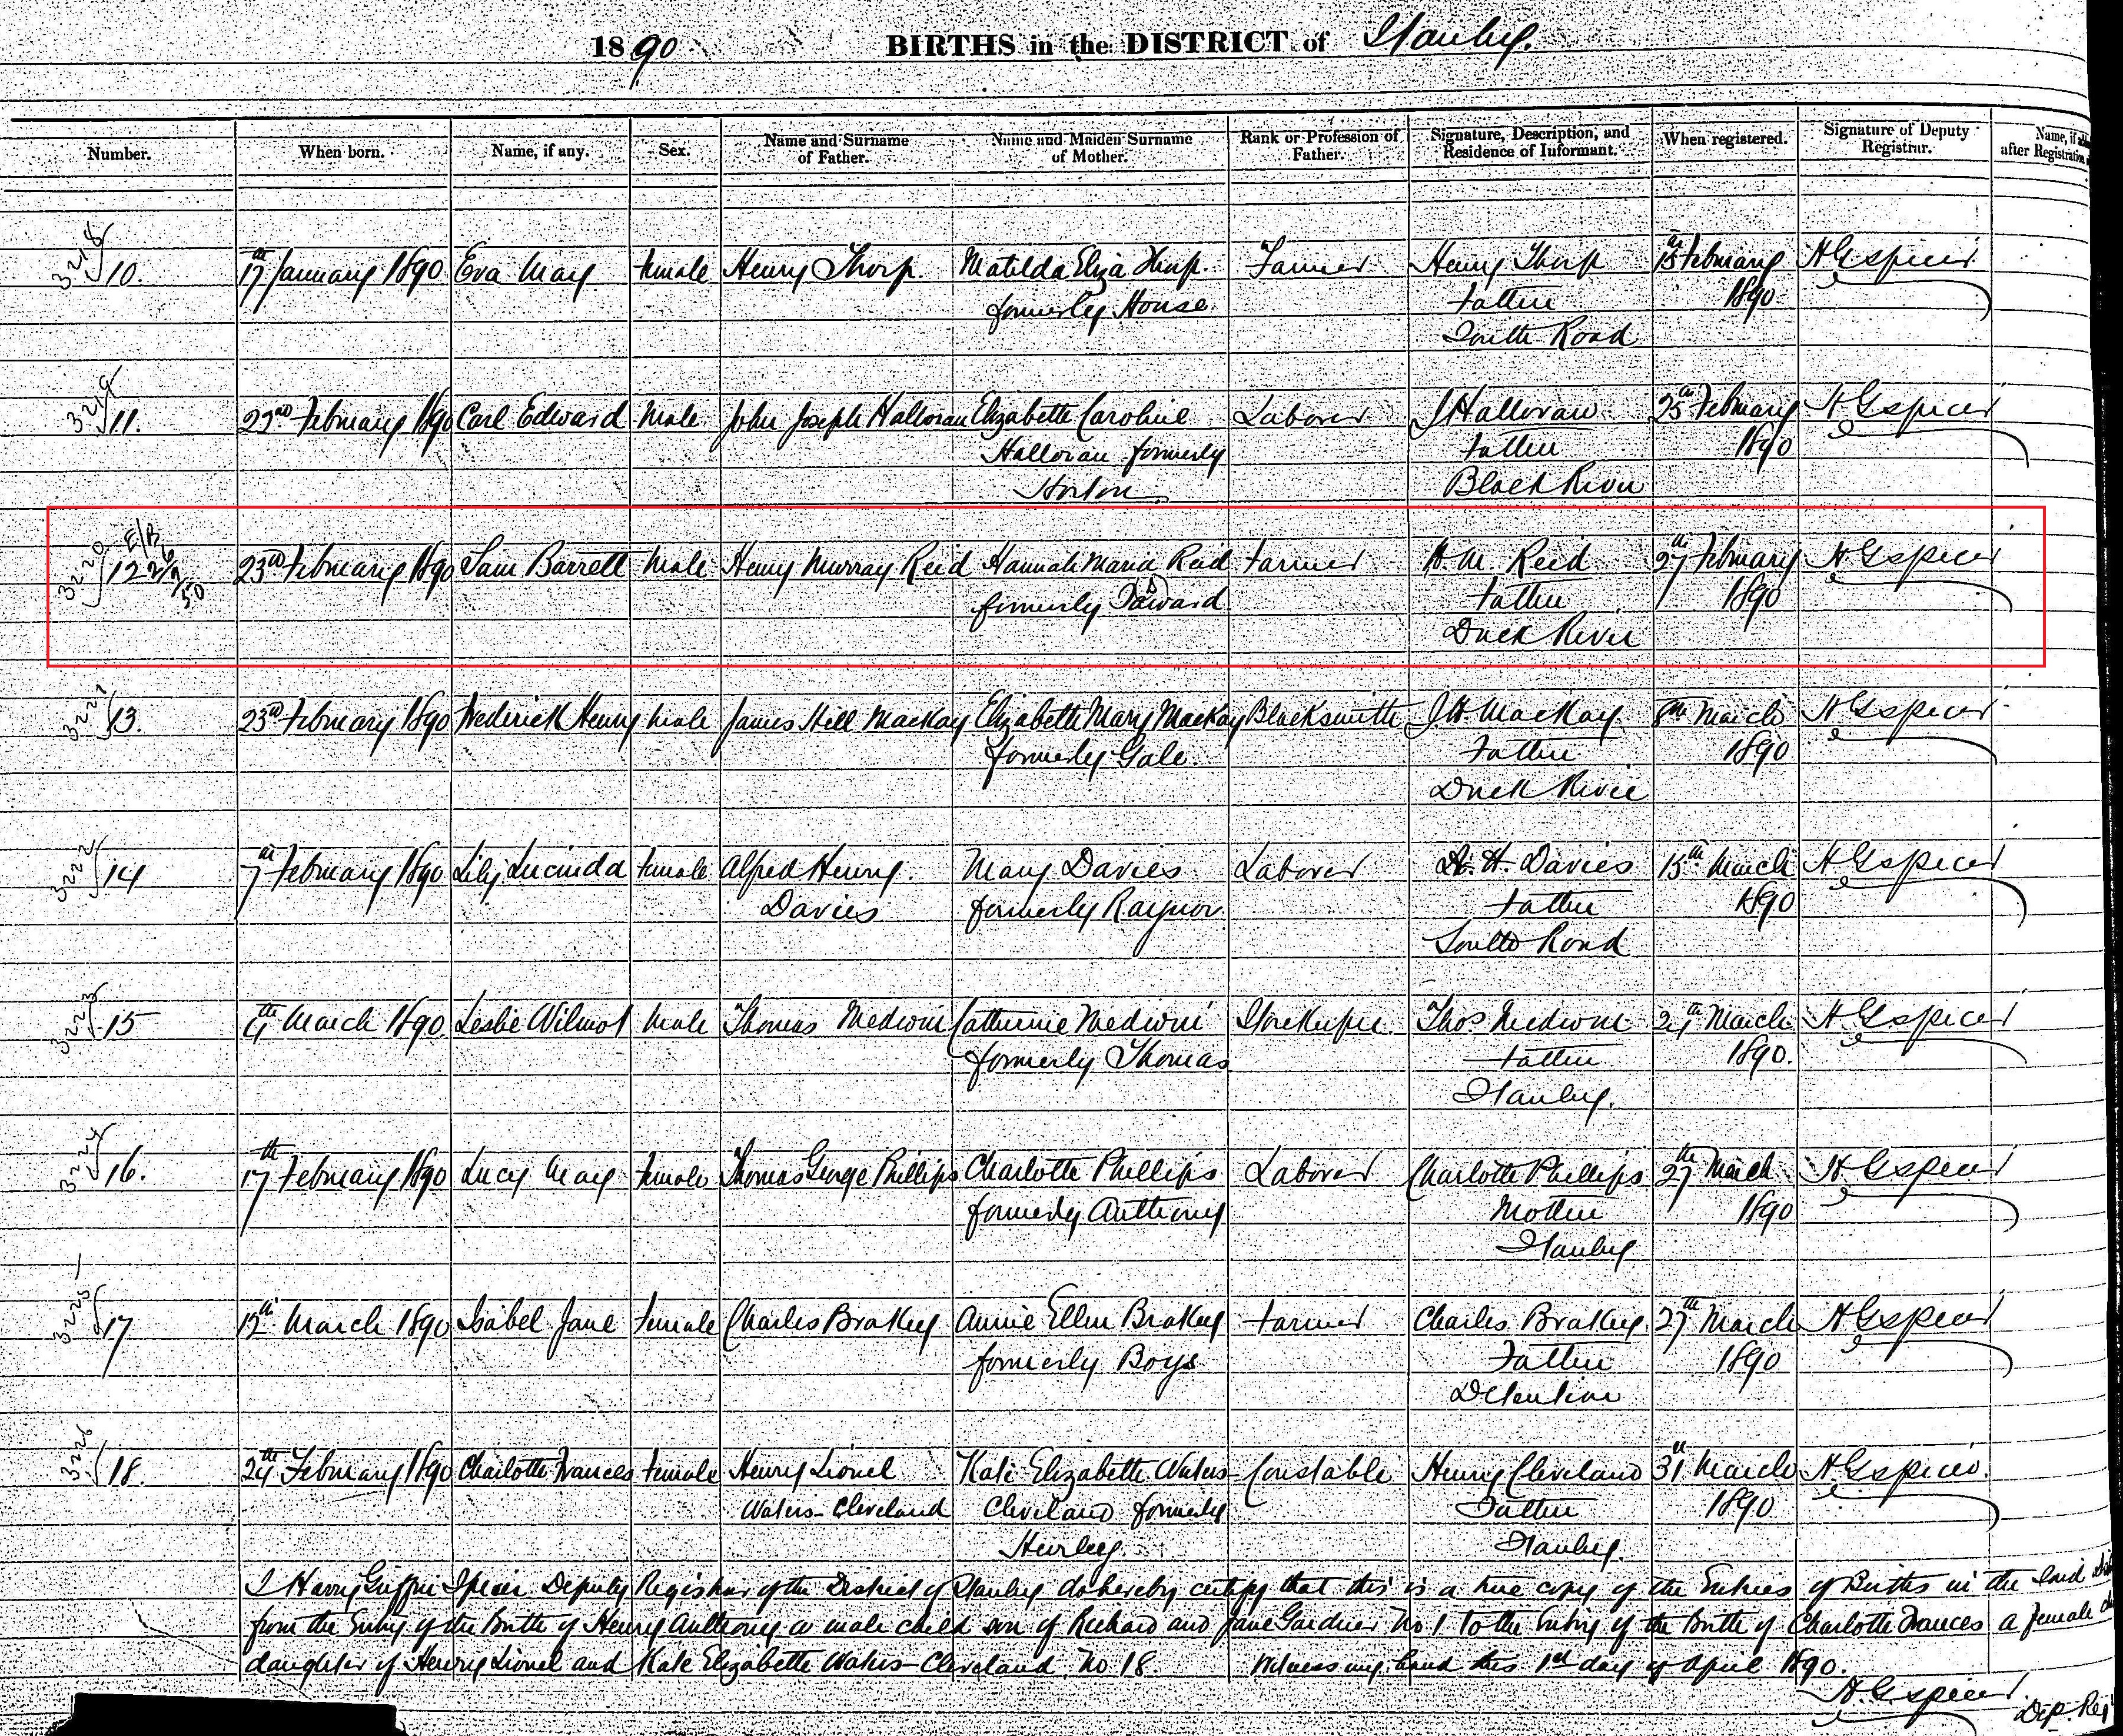 1890 BIRTHS in the DISTRICT of Stanley.
Number. When born. Name, if any. Sex. Name and Surname of Father. Name and Maiden Surname of Mother. Rank or Profession of Father. Signature, Description, and Residence of Informant. When registered. Signature of Deputy Registrar. Name, if after Registration
3218 10. 17th January 1890 Eva May Female Henry Thorp. Matilda Eliza Thorp. Farmer Henry Thorp 15th February H G Spicer
formerly House Father 1890
South Road
3219 11. 22nd February 1890 Carl Edward Male John Joseph Halloran Elizabeth Caroline Laborer J Halloran 25th February H G Spicer
Halloran formerly Father 1890
Horton. Black River
3220 12 E/R 22/9/50 23rd February 1890 Sam Barrett Male Henry Murray Reid Hannah Maria Reid Farmer H. M. Reid 27th February H G Spicer
formerly Father 1890
Duck River
3221 13. 23rd February 1890 Frederick Henry Male James Hill Mackay Elizabeth Mary Mackay Blacksmith J H. Mackay 8th March H G Spicer
formerly Gale. Father 1890
Duck River
3222 14 7th February 1890 Lily Lucinda Female Alfred Henry Mary Davies Laborer A. H. Davies 15th March H G Spicer
Davies formerly Raynor Father 1890
South Road
3223 15 4th March 1890. Leslie Wilmot Male Thomas Medwin Catherine Medwin Storekeeper. Thos Medwin 24th March H. G Spicer
formerly Thomas Father 1890.
Stanley.
3224 16. 17th February 1890 Lucy May Female Thomas George Phillips Charlotte Phillips Laborer Charlotte Phillips 27th March H. G Spicer
formerly Anthony Mother 1890
Stanley
3225 17 12th March 1890 Isabel Jane Female Charles Brakey Annie Ellen Brakey Farmer Charles Brakey 27th March H G Spicer
formerly Boys Father 1890
Detention
3226 18. 24th February 1890 Charlotte Frances Female Henry Lionel Kate Elizabeth Waters- Constable Henry Cleveland 31st March H G Spicer
Waters-Cleveland Cleveland formerly Father 1890
Hurley. Stanley.
I Harry Griffin Spicer Deputy Registrar of the District of Stanley do hereby certify that this is a true copy of the Entries of Births in the said
from the Entry of the Birth of Henry Anthony a male child son of Richard and Jane Gardner No 1 to the Entry of the Birth of Charlotte Frances a female
daughter of Henry Lionel and Kate Elizabeth Waters-Cleveland. No 18. Witness my hand this 1st day of April 1890.
H. G Spicer
Dep. Reg